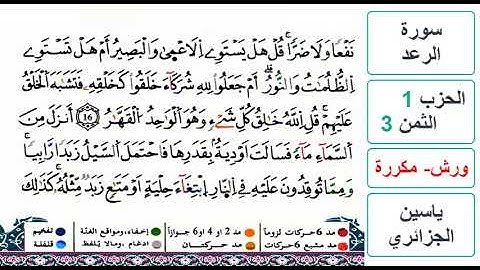 نَفْعاً وَلَا ضَرّاٗۖ قُلْ هَلْ يَسْتَوِے اِ۬لَاعْمٰى وَالْبَصِيرُ أَمْ هَلْ تَسْتَوِے
اِ۬لظُّلُمَٰتُ وَالنُّورُۖ أَمْ جَعَلُواْ لِلهِ شُرَكَآءَ خَلَقُواْ كَخَلْقِهِۦ فَتَشَٰبَهَ اَ۬لْخَلْقُ
عَلَيْهِمْۖ قُلِ اِ۬للَّهُ خَٰلِقُ كُلِّ شَےْءٖ وَهُوَ اَ۬لْوَٰحِدُ اُ۬لْقَهَّٰرُۖ 16 أَنزَلَ مِنَ
اَ۬لسَّمَآءِ مَآءٗ فَسَالَتْ أَوْدِيَةُۢ بِقَدَرِهَا فَاحْتَمَلَ اَ۬لسَّيْلُ زَبَداٗ رَّابِياٗۖ
وَمِمَّا تُوقِدُونَ عَلَيْهِ فِے اِ۬لنَّارِ اِ۪بْتِغَآءَ حِلْيَةٍ اَوْ مَتَٰعٖ زَبَدٞ مِّثْلُهُۥۖ كَذَٰلِكَ
مد 6 حركات لزوماً مد 2 او 4 او 6 جوازاً إخفاء، ومواقع الغنّة تفخيم
مد مشبع 6 حركات مد حركتان ادغام ، ومالا يُلفظ قلقلة
سورة
الرعد
الحزب 1
الثمن 3
ورش- مكررة
ياسين
الجزائري